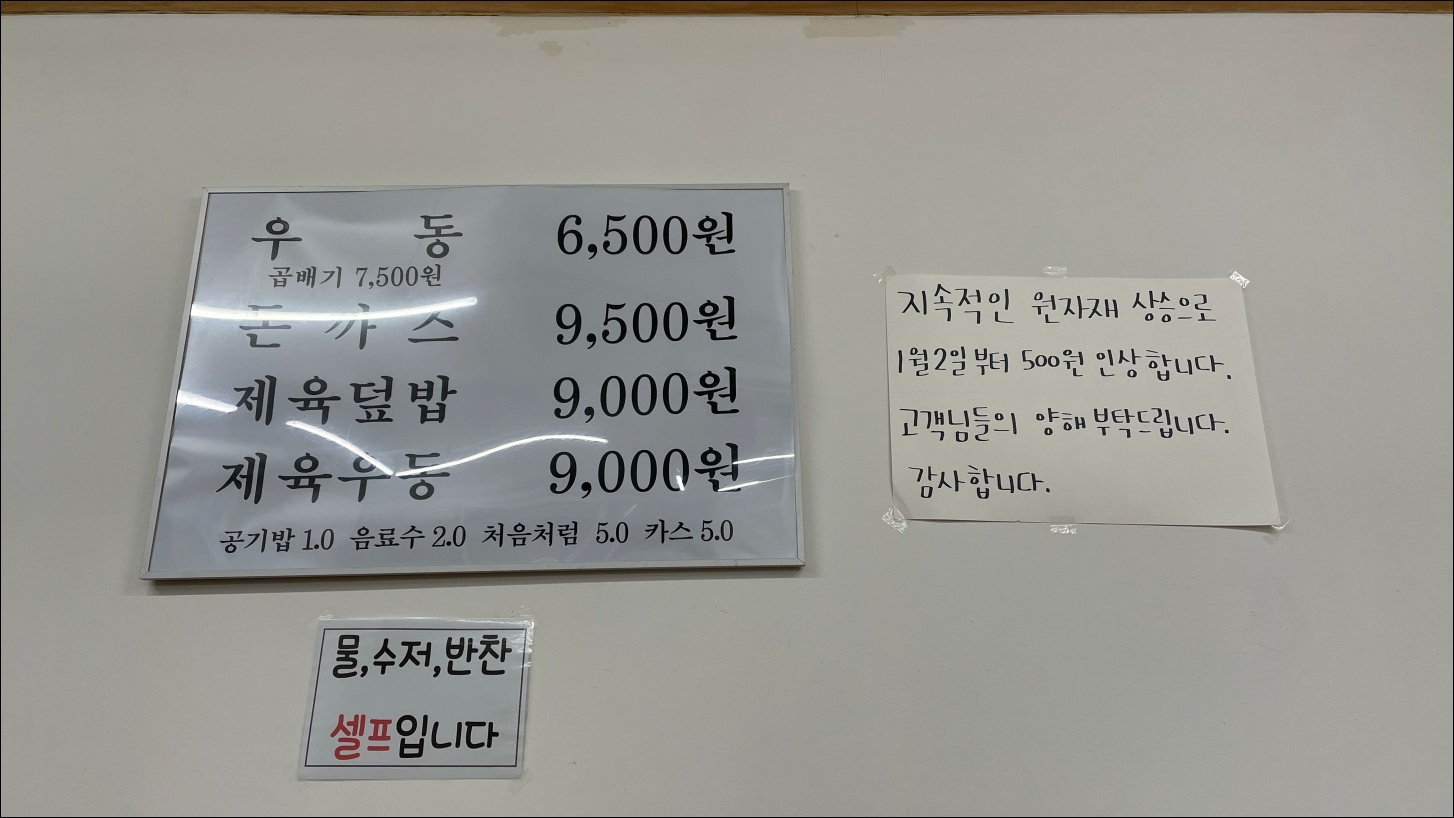 우 동 6,500원
곱배기 7,500원
돈 까 스 9,500원
제육덮밥 9,000원
제육우동 9,000원
공기밥 1.0 음료수 2.0 처음처럼 5.0 카스 5.0
물,수저,반찬
셀프입니다
지속적인 원자재 상승으로
1월2일부터 500원 인상합니다.
고객님들의 양해부탁드립니다.
감사합니다.